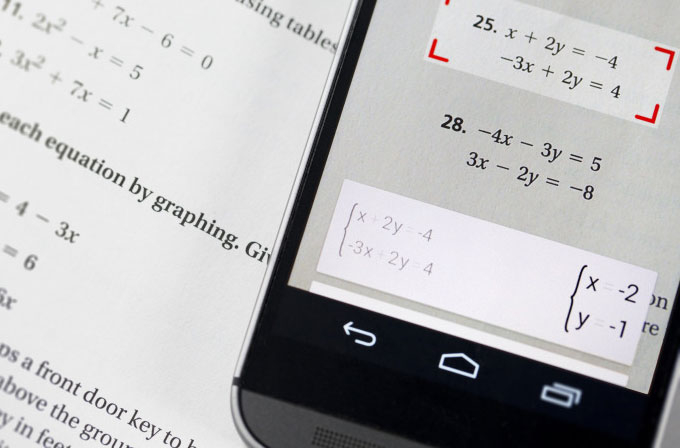 using tables
+ 7x − 6 = 0
11. 2x² − x = 5
3x² + 7x = 1
each equation by graphing.
= 4 − 3x
= 6
a front door key to
above the
in
25. x + 2y = −4
−3x + 2y = 4
28. −4x − 3y = 5
3x − 2y = −8
x + 2y = -4
-3x + 2y = 4
x = -2
y = -1